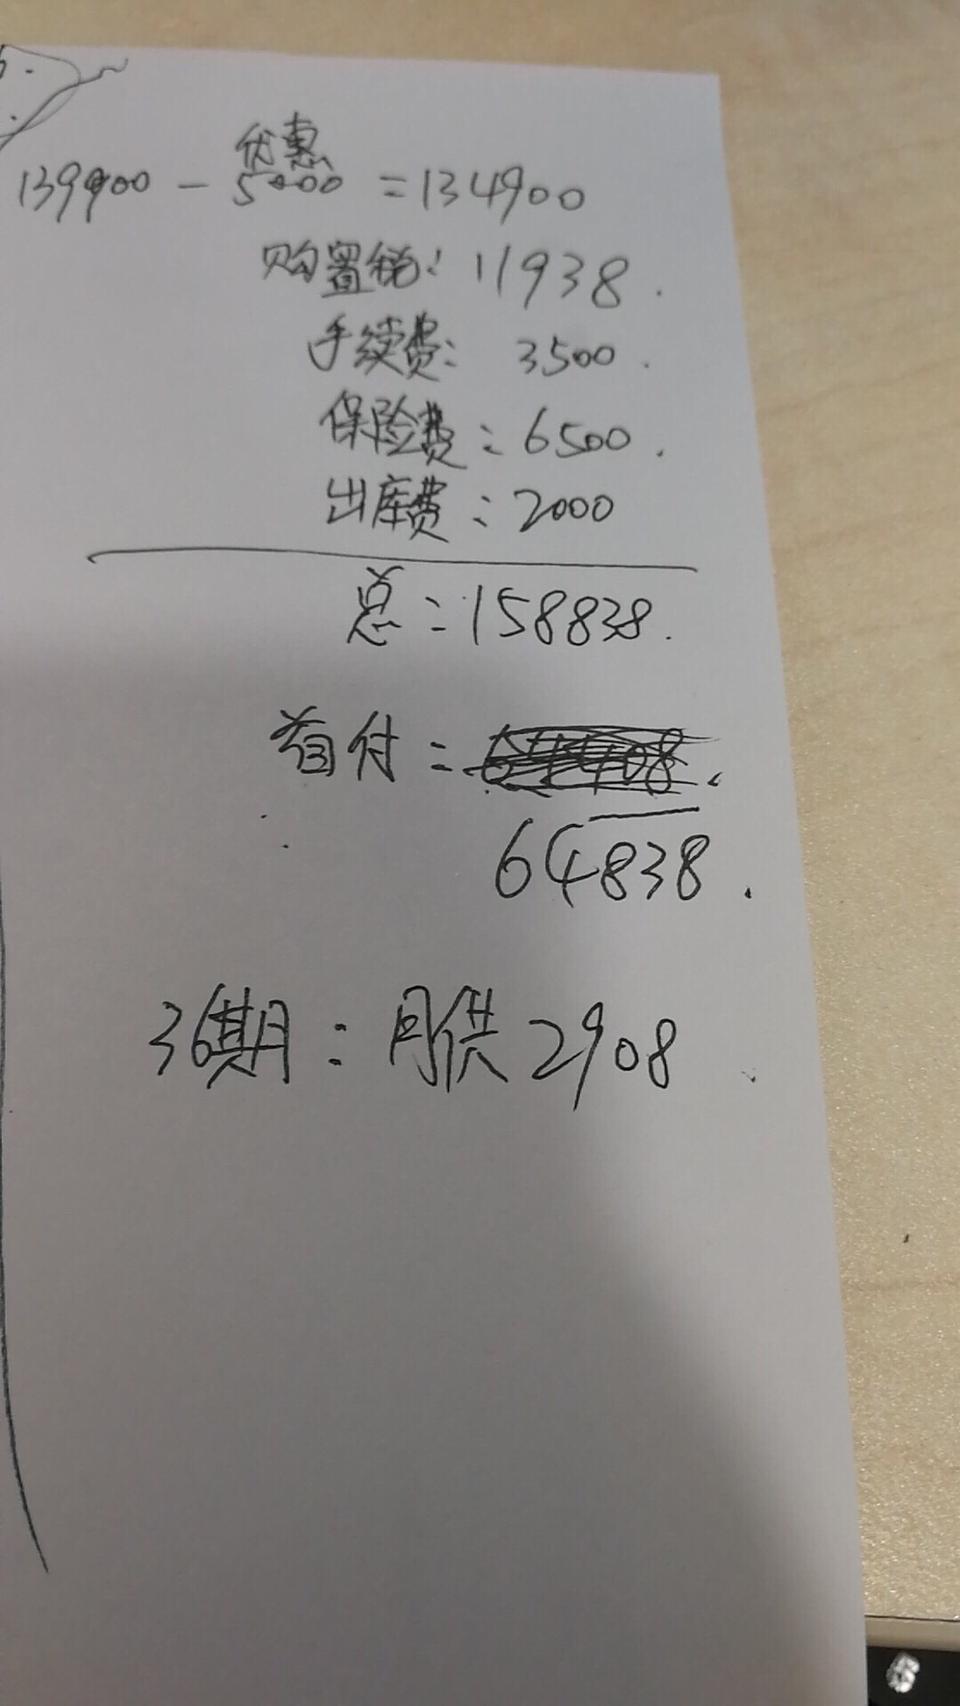 优惠
139900 - 5000 = 134900
购置税: 11938.
手续费: 3500.
保险费: 6500.
出库费: 2000
总: 158838.
首付:
64838.
36期: 月供2908